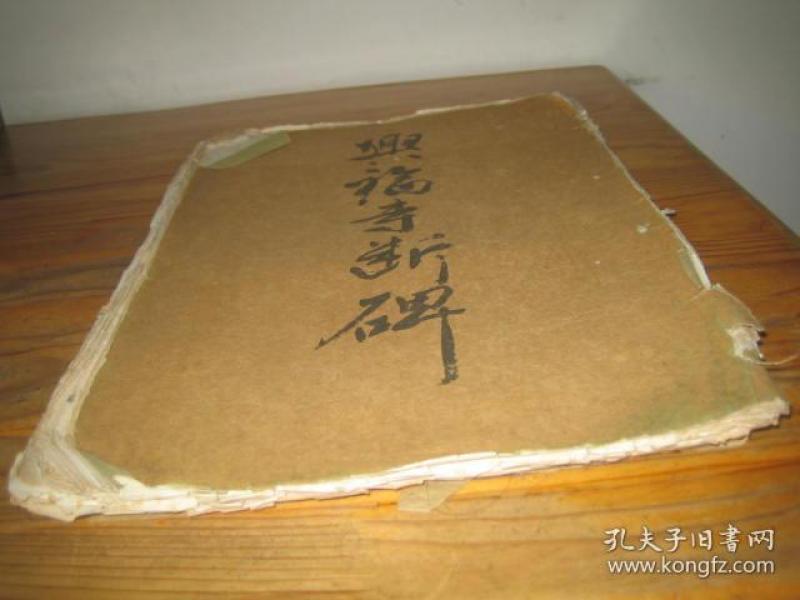 興福寺断碑
孔夫子旧書网
www.kongfz.com